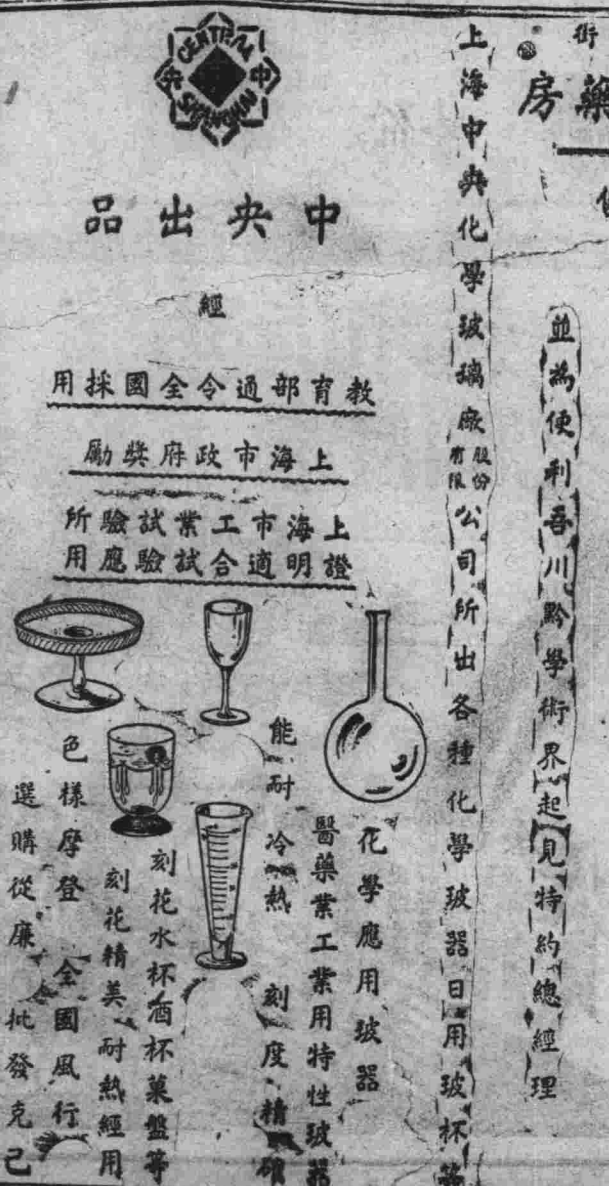 街
藥房
並為便利吾川黔學術界起見特約總經理
上海中央化學玻璃廠股份有限公司所出各種化學玻器日用玻杯等
CENTRAL
中央
SHANGHAI
中央出品
經
教育部通令全國採用
上海市政府獎勵
上海市工業試驗所
證明適合試驗應用
化學應用玻器
醫藥業工業用特性玻器
能耐冷熱 刻度精確
刻花水杯酒杯菓盤等
刻花精美 耐熱經用
色樣摩登 全國風行
選購從廉 批發克己